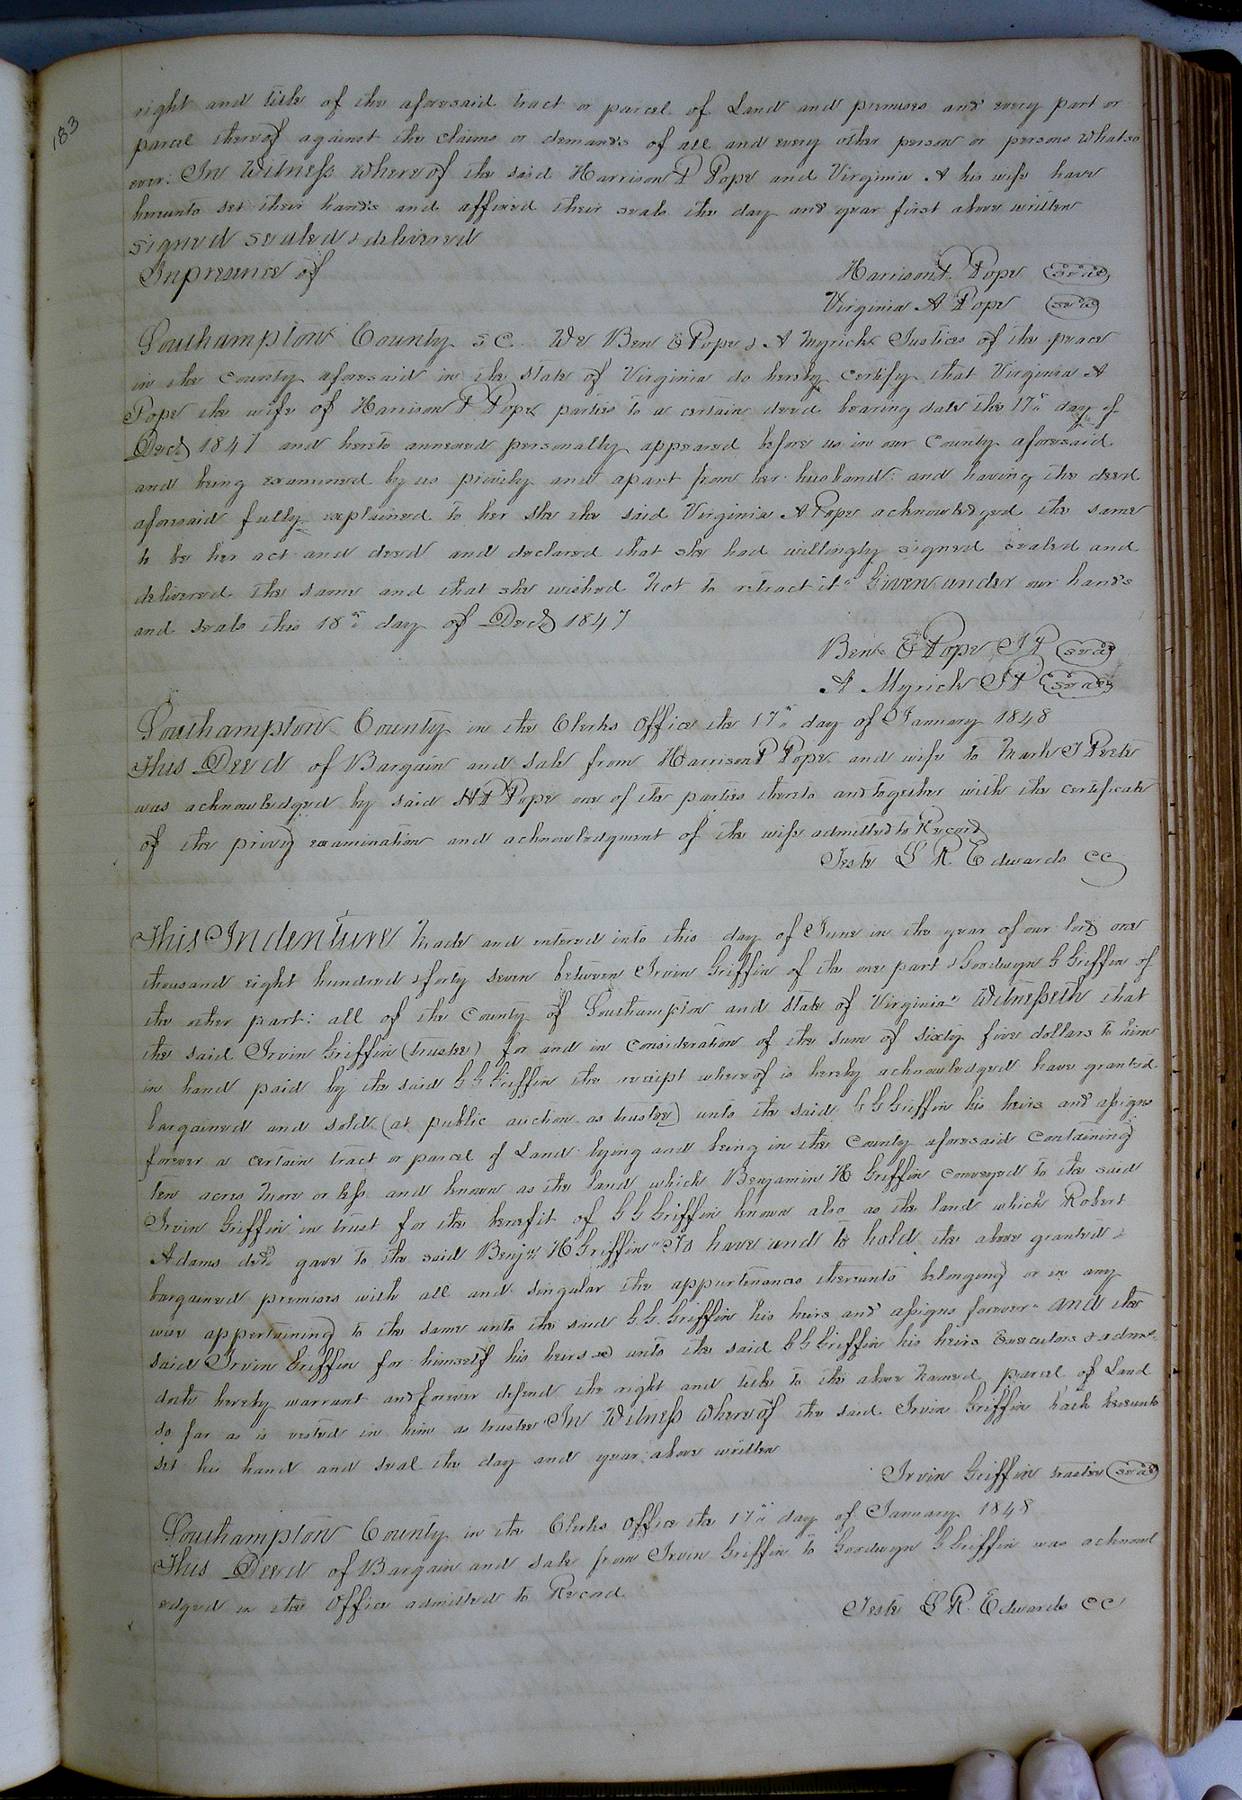 183
right and title of the aforesaid tract or parcel of Land and premises and every part or
parcel thereof against the claims or demands of all and every other person or persons whatso
ever: In Witness Whereof the said Harrison P Pope and Virginia A his wife have
hereunto set their hands and affixed their seals the day and year first above written
signed sealed & delivered
In presence of
Harrison P. Pope (seal)
Virginia A Pope (seal)
Southampton County SC. We Ben E Pope & A Myrick Justices of the peace
in the County aforesaid in the state of Virginia do hereby certify that Virginia A
Pope the wife of Harrison P Pope parties to a certain deed bearing date the 17th day of
Decr 1847 and hereto annexed personally appeared before us in our County aforesaid
and being examined by us privily and apart from her husband: and having the deed
aforesaid fully explained to her she the said Virginia A Pope acknowledged the same
to be her act and deed and declared that she had willingly signed sealed and
delivered the same and that she wished not to retract it" Given under our hands
and seals this 18th day of Decr 1847
Ben E Pope JP (seal)
A Myrick JP (seal)
Southampton County in the Clerks Office the 17th day of January 1848
This Deed of Bargain and sale from Harrison P Pope and wife to Mark J Peete
was acknowledged by said H P Pope one of the parties thereto and together with the certificate
of the privy examination and acknowledgment of the wife admitted to Record
Teste L R. Edwards CC
This Indenture Made and entered into this day of June in the year of our lord one
thousand eight hundred & forty seven between Irvin Griffin of the one part & Goodwyn G Griffin of
the other part: all of the County of Southampton and State of Virginia" Witnesseth that
the said Irvin Griffin (trustee) for and in consideration of the sum of sixty five dollars to him
in hand paid by the said G G Griffin the receipt whereof is hereby acknowledged have granted
bargained and sold (at public auction as trustee) unto the said G G Griffin his heirs and assigns
forever a certain tract or parcel of Land lying and being in the County aforesaid Containing
ten acres more or less and known as the land which Benjamin H Griffin conveyed to the said
Irvin Griffin in trust for the benefit of G G Griffin known also as the land which Robert
Adams decd gave to the said Benjn H Griffin" To have and to hold the above granted &
bargained premises with all and singular the appurtenances thereunto belonging or in any
wise appertaining to the same unto the said G G. Griffin his heirs and assigns forever" and the
said Irvin Griffin for himself his heirs &c unto the said G G Griffin his heirs Executors & admrs
doth hereby warrant and forever defend the right and title to the above named parcel of Land
so far as is vested in him as trustee" In Witness Whereof the said Irvin Griffin hath hereunto
set his hand and seal the day and year above written
Irvin Griffin trustee (seal)
Southampton County in the Clerks Office the 17th day of January 1848
This Deed of Bargain and sale from Irvin Griffin to Goodwyn G Griffin was acknowl
edged in the Office admitted to Record
Teste L R. Edwards CC